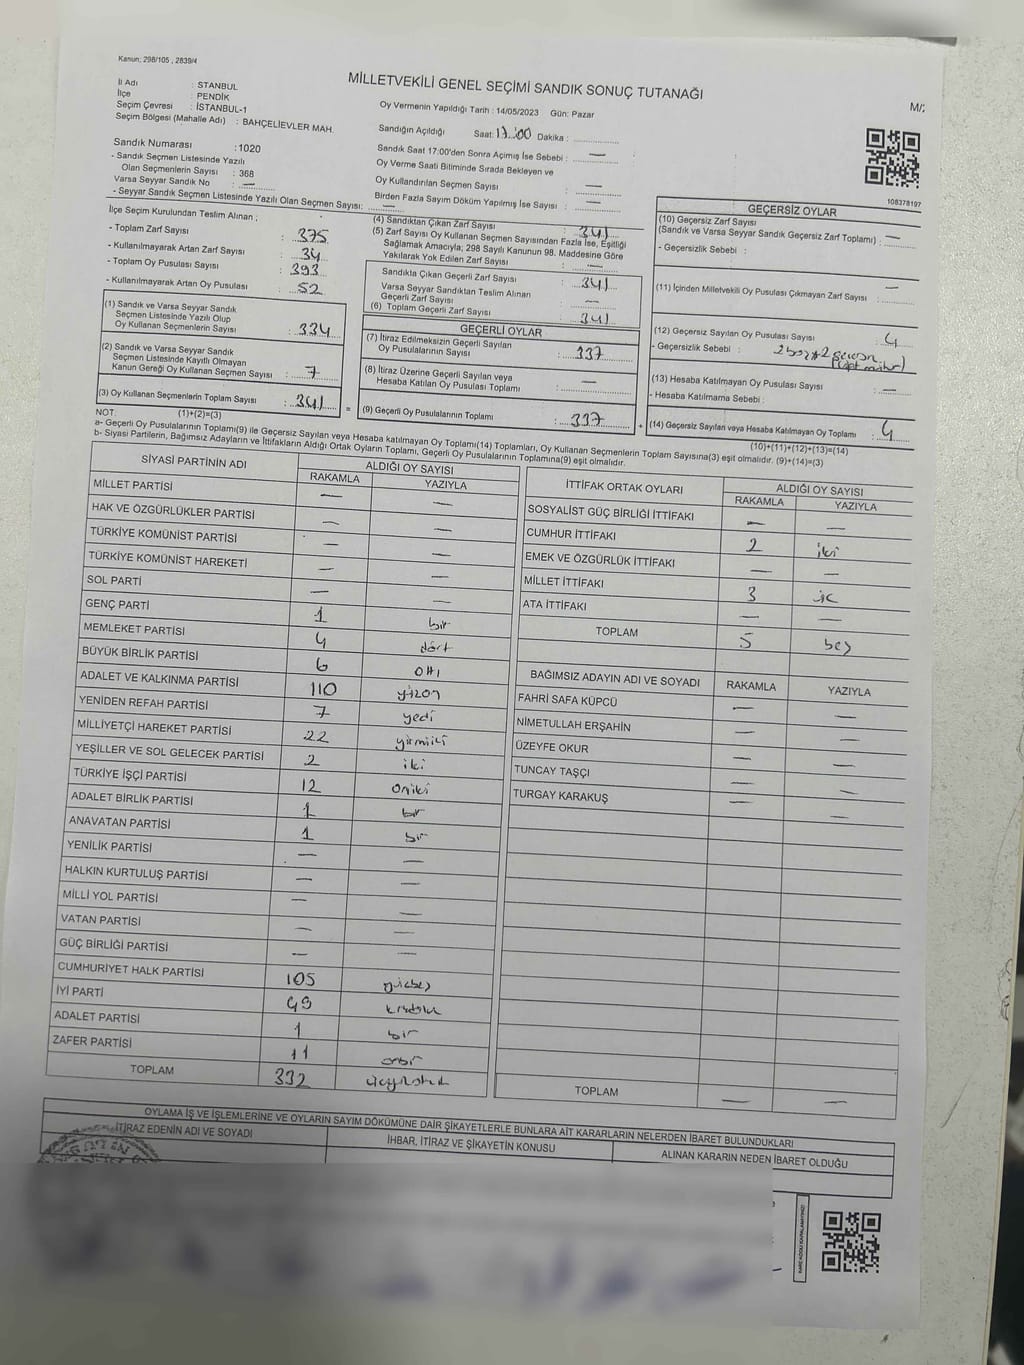 Kanun; 298/105 , 2839/4
MİLLETVEKİLİ GENEL SEÇİMİ SANDIK SONUÇ TUTANAĞI
M/2
İl Adı : STANBUL
İlçe : PENDİK
Seçim Çevresi : İSTANBUL-1
Seçim Bölgesi (Mahalle Adı) : BAHÇELİEVLER MAH.
Oy Vermenin Yapıldığı Tarih : 14/05/2023 Gün: Pazar
Sandığın Açıldığı Saat: 17:00 Dakika :
Sandık Saat 17:00'den Sonra Açılmış İse Sebebi : —
Oy Verme Saati Bitiminde Sırada Bekleyen ve
Oy Kullandırılan Seçmen Sayısı : —
Birden Fazla Sayım Döküm Yapılmış İse Sayısı : —
Sandık Numarası : 1020
- Sandık Seçmen Listesinde Yazılı
Olan Seçmenlerin Sayısı : 368
Varsa Seyyar Sandık No : —
- Seyyar Sandık Seçmen Listesinde Yazılı Olan Seçmen Sayısı: —
108378197
İlçe Seçim Kurulundan Teslim Alınan ;
- Toplam Zarf Sayısı : 375
- Kullanılmayarak Artan Zarf Sayısı : 34
- Toplam Oy Pusulası Sayısı : 393
- Kullanılmayarak Artan Oy Pusulası : 52
(1) Sandık ve Varsa Seyyar Sandık
Seçmen Listesinde Yazılı Olup
Oy Kullanan Seçmenlerin Sayısı : 334
(2) Sandık ve Varsa Seyyar Sandık
Seçmen Listesinde Kayıtlı Olmayan
Kanun Gereği Oy Kullanan Seçmen Sayısı : 7
(3) Oy Kullanan Seçmenlerin Toplam Sayısı : 341
(4) Sandıktan Çıkan Zarf Sayısı : 341
(5) Zarf Sayısı Oy Kullanan Seçmen Sayısından Fazla İse, Eşitliği
Sağlamak Amacıyla; 298 Sayılı Kanunun 98. Maddesine Göre
Yakılarak Yok Edilen Zarf Sayısı : —
Sandıkta Çıkan Geçerli Zarf Sayısı : 341
Varsa Seyyar Sandıktan Teslim Alınan
Geçerli Zarf Sayısı : —
(6) Toplam Geçerli Zarf Sayısı : 341
GEÇERLİ OYLAR
(7) İtiraz Edilmeksizin Geçerli Sayılan
Oy Pusulalarının Sayısı : 337
(8) İtiraz Üzerine Geçerli Sayılan veya
Hesaba Katılan Oy Pusulası Toplamı : —
(9) Geçerli Oy Pusulalarının Toplamı : 337
GEÇERSİZ OYLAR
(10) Geçersiz Zarf Sayısı
(Sandık ve Varsa Seyyar Sandık Geçersiz Zarf Toplamı) : —
- Geçersizlik Sebebi :
(11) İçinden Milletvekili Oy Pusulası Çıkmayan Zarf Sayısı : —
(12) Geçersiz Sayılan Oy Pusulası Sayısı : 4
- Geçersizlik Sebebi :
(13) Hesaba Katılmayan Oy Pusulası Sayısı : —
- Hesaba Katılmama Sebebi :
(14) Geçersiz Sayılan veya Hesaba Katılmayan Oy Toplamı : 4
NOT: (1)+(2)=(3)
(10)+(11)+(12)+(13)=(14)
a- Geçerli Oy Pusulalarının Toplamı(9) ile Geçersiz Sayılan veya Hesaba katılmayan Oy Toplamı(14) Toplamları, Oy Kullanan Seçmenlerin Toplam Sayısına(3) eşit olmalıdır. (9)+(14)=(3)
b- Siyasi Partilerin, Bağımsız Adayların ve İttifakların Aldığı Ortak Oyların Toplamı, Geçerli Oy Pusulalarının Toplamına(9) eşit olmalıdır.
SİYASİ PARTİNİN ADI ALDIĞI OY SAYISI
RAKAMLA YAZIYLA
MİLLET PARTİSİ — —
HAK VE ÖZGÜRLÜKLER PARTİSİ — —
TÜRKİYE KOMÜNİST PARTİSİ — —
TÜRKİYE KOMÜNİST HAREKETİ — —
SOL PARTİ — —
GENÇ PARTİ 1 bir
MEMLEKET PARTİSİ 4 dört
BÜYÜK BİRLİK PARTİSİ 6 altı
ADALET VE KALKINMA PARTİSİ 110 yüzon
YENİDEN REFAH PARTİSİ 7 yedi
MİLLİYETÇİ HAREKET PARTİSİ 22 yirmiiki
YEŞİLLER VE SOL GELECEK PARTİSİ 2 iki
TÜRKİYE İŞÇİ PARTİSİ 12 oniki
ADALET BİRLİK PARTİSİ 1 bir
ANAVATAN PARTİSİ 1 bir
YENİLİK PARTİSİ — —
HALKIN KURTULUŞ PARTİSİ — —
MİLLİ YOL PARTİSİ — —
VATAN PARTİSİ — —
GÜÇ BİRLİĞİ PARTİSİ — —
CUMHURİYET HALK PARTİSİ 105 yüzbeş
İYİ PARTİ 49
ADALET PARTİSİ 1 bir
ZAFER PARTİSİ 11 onbir
TOPLAM 332
İTTİFAK ORTAK OYLARI ALDIĞI OY SAYISI
RAKAMLA YAZIYLA
SOSYALİST GÜÇ BİRLİĞİ İTTİFAKI — —
CUMHUR İTTİFAKI 2 iki
EMEK VE ÖZGÜRLÜK İTTİFAKI — —
MİLLET İTTİFAKI 3 üç
ATA İTTİFAKI — —
TOPLAM 5 beş
BAĞIMSIZ ADAYIN ADI VE SOYADI RAKAMLA YAZIYLA
FAHRİ SAFA KÜPCÜ — —
NİMETULLAH ERŞAHİN — —
ÜZEYFE OKUR — —
TUNCAY TAŞÇI — —
TURGAY KARAKUŞ — —
TOPLAM — —
OYLAMA İŞ VE İŞLEMLERİNE VE OYLARIN SAYIM DÖKÜMÜNE DAİR ŞİKAYETLERLE BUNLARA AİT KARARLARIN NELERDEN İBARET BULUNDUKLARI
İTİRAZ EDENİN ADI VE SOYADI İHBAR, İTİRAZ VE ŞİKAYETİN KONUSU ALINAN KARARIN NEDEN İBARET OLDUĞU